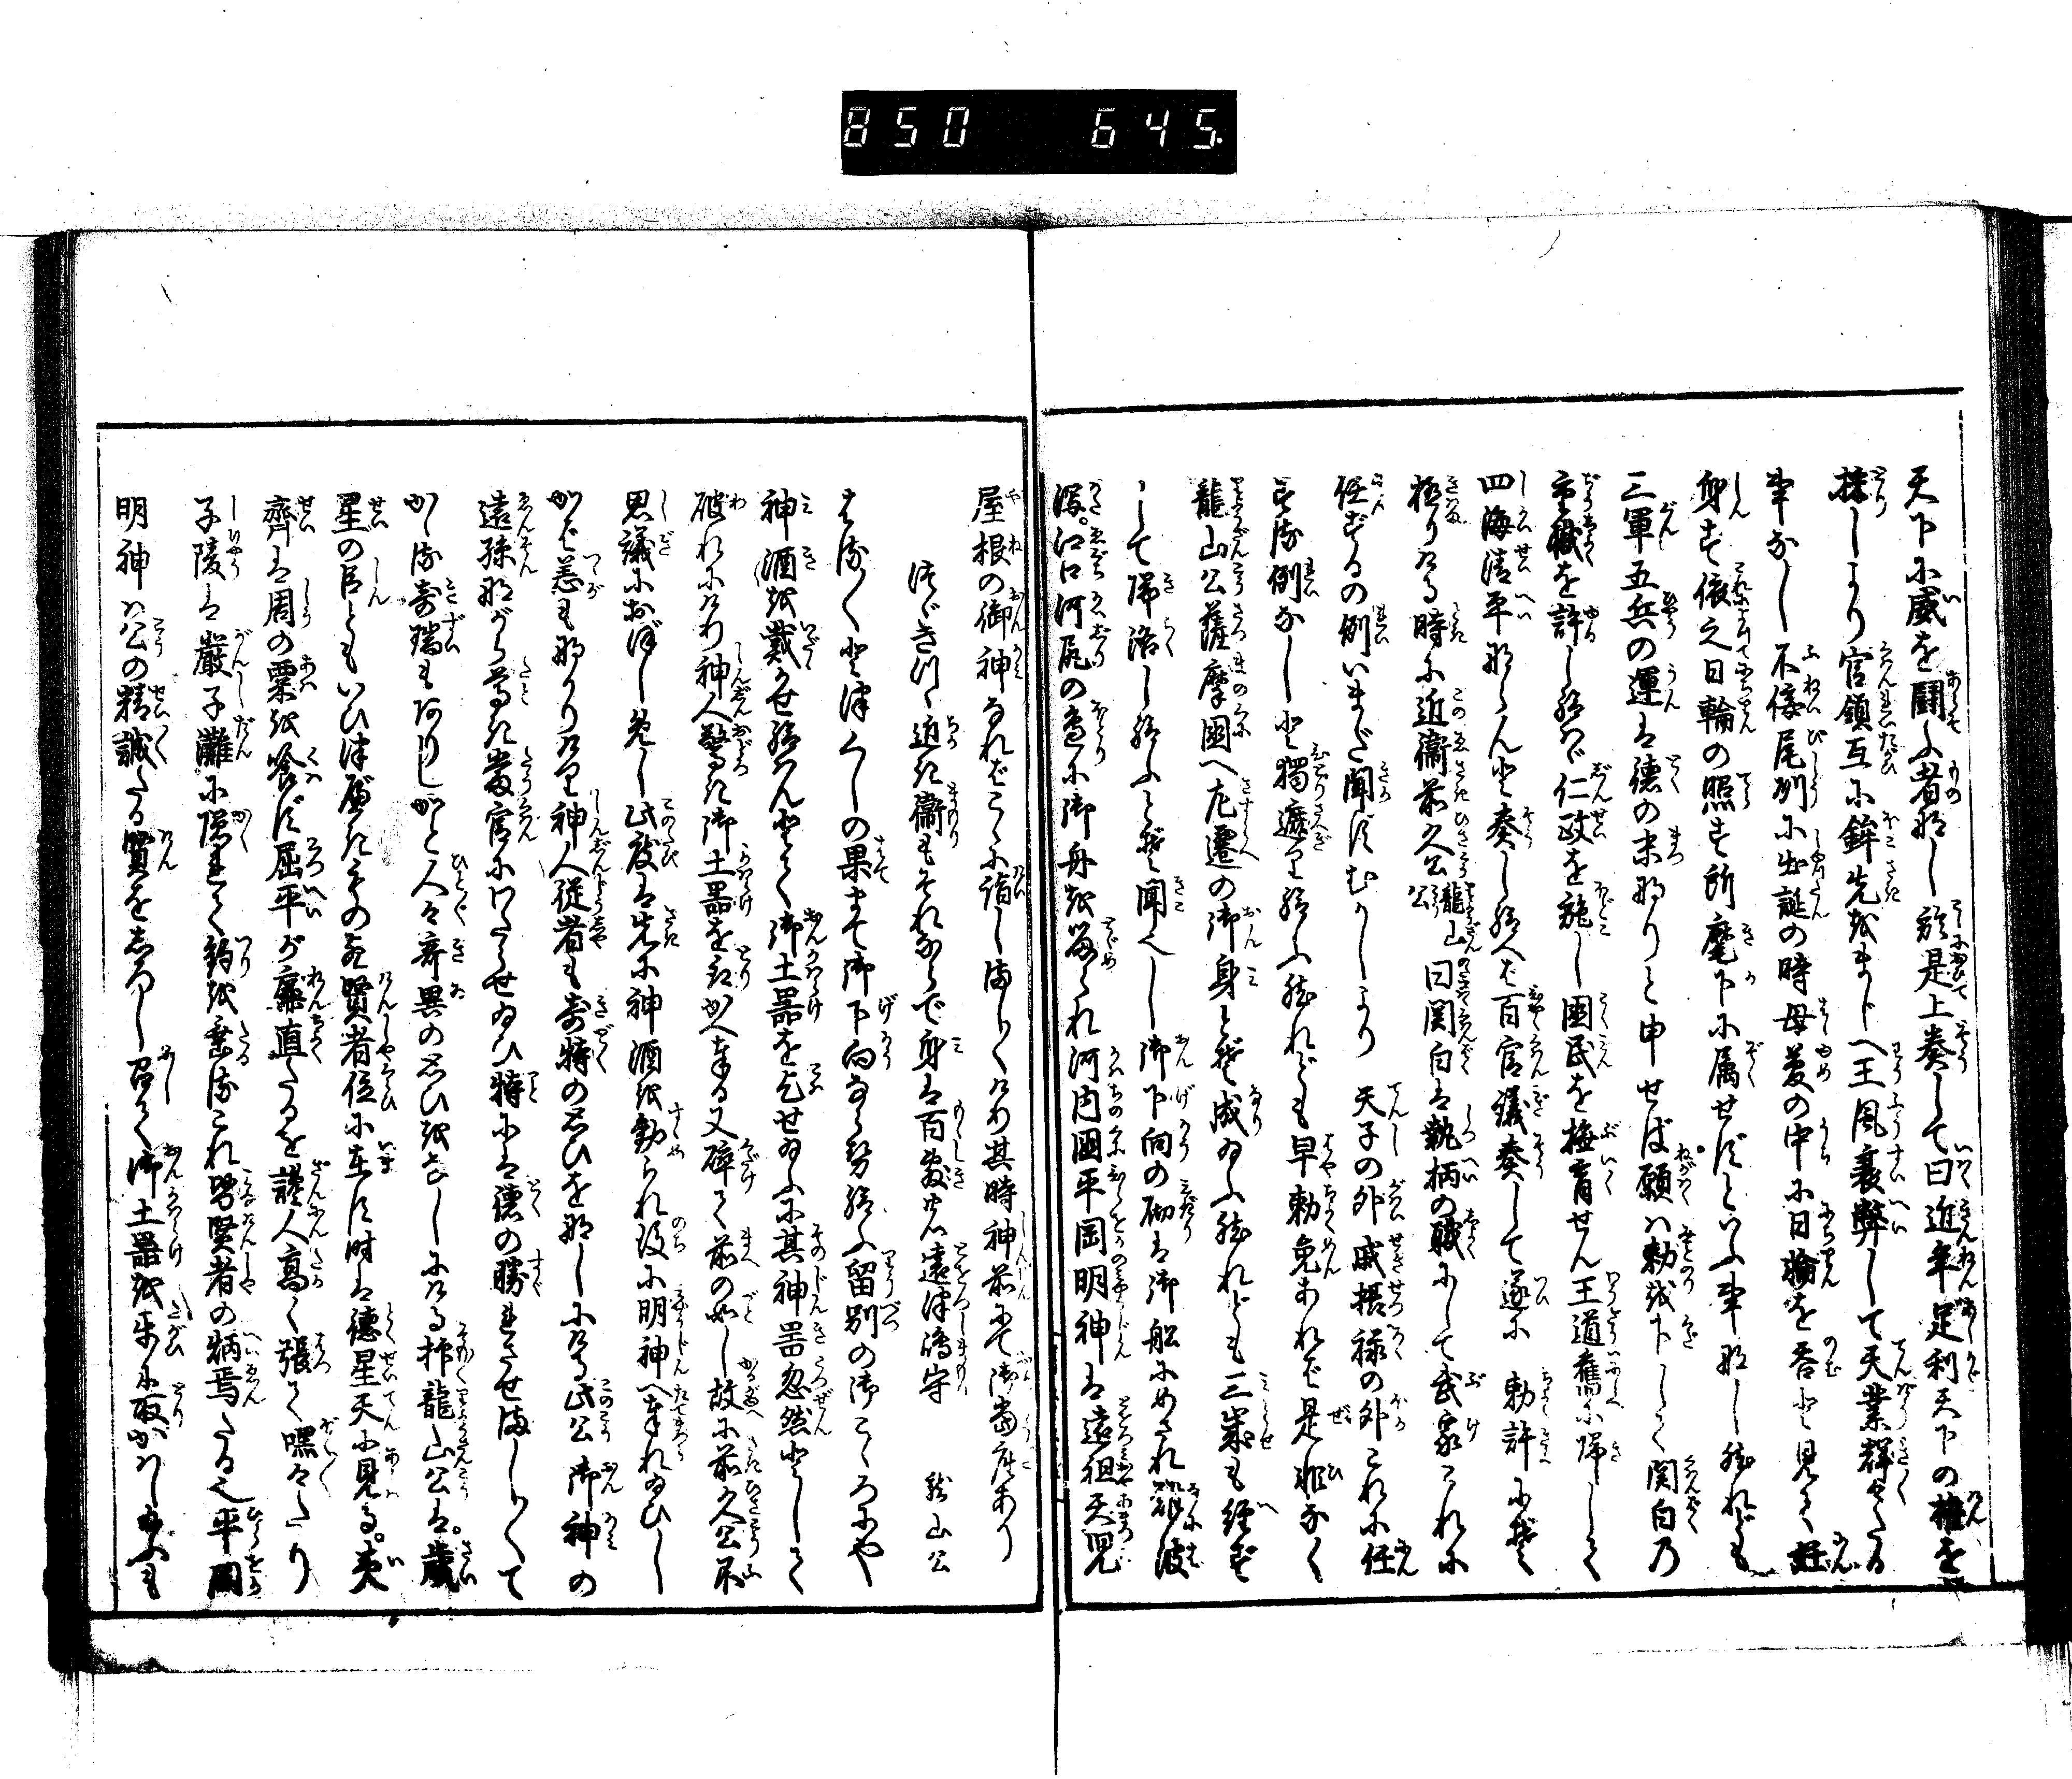 850 645
天下に威を闘ふ者なし於是上奏して曰近年足利天下の権を
採しより官領互に鉾先をまじへ王風衰弊して天業群々たる
事なし不侫尾州に出誕の時母夢の中に日輪を呑と見て妊
身す依之日輪の照す所麾下に属せずといふ事なし然れども
三軍五兵の運は徳の末なりと申せば願くは勅を下して関白乃
重職を許し給はゞ仁政を施し国民を撫育せん王道舊に帰して
四海清平ならんと奏し給へば百官議奏して遂に勅許にぞ
極りける時に近衞前久公龍山公曰関白は執柄の職にして武家これに
任ずるの例いまだ聞ずむかしより天子の外戚摂禄の外これに任
ずる例なしと獨遮り給ふ然れども早勅免あれば是非なく
龍山公薩摩國へ左遷の御身とぞ成給ふ然れども三歳も経ず
して帰洛し給ふとぞ聞へし御下向の砌は御船にめされ難波
潟江口河尻の邊に御舟を留られ河内國平岡明神は遠祖天児
屋根の御神なればこゝに詣しましましけり其時神前にて御當座あり
つゞき川近き衞もそれならで身は百敷の遠津嶋守 龍山公
はるばると津くしの果まで御下向なら勢給ふ留別の御こゝろにや
神酒を戴かせ給はんとて御土器を乞せ給ふに其神器忽然として
破れにけり神人驚き御土器を取かへ奉る又碎て前の如し故に前久公不
思議におぼし免し此度は先に神酒を勧られ後に明神へ奉れ給ひし
かば恙もなかりけり神人従者も奇特の思ひをなしにける此公御神の
遠孫ながら尊き當官にわたらせ給ひ特には徳の勝れさせましまして
かゝる奇瑞もありしかと人々奇異の思ひをなしにける抑龍山公は歳
星の臣ともいひ津べきその上賢者位に在す時は徳星天に見る夷
齊は周の粟を喰ず屈平が廉直たるを讒人高く張て嘿々たり
子陵は嚴子灘に隠れて釣を垂るこれ皆賢者の炳焉たる也平岡
明神は公の精誠たる實をしろし召て御土器を互に取かはし給ふも